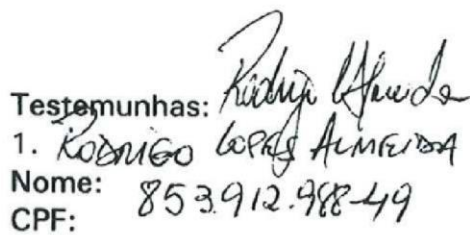 Testemunhas: Rodrigo L Almeida
1. RODRIGO LOPES ALMEIDA
Nome:
CPF: 853.912.988-49